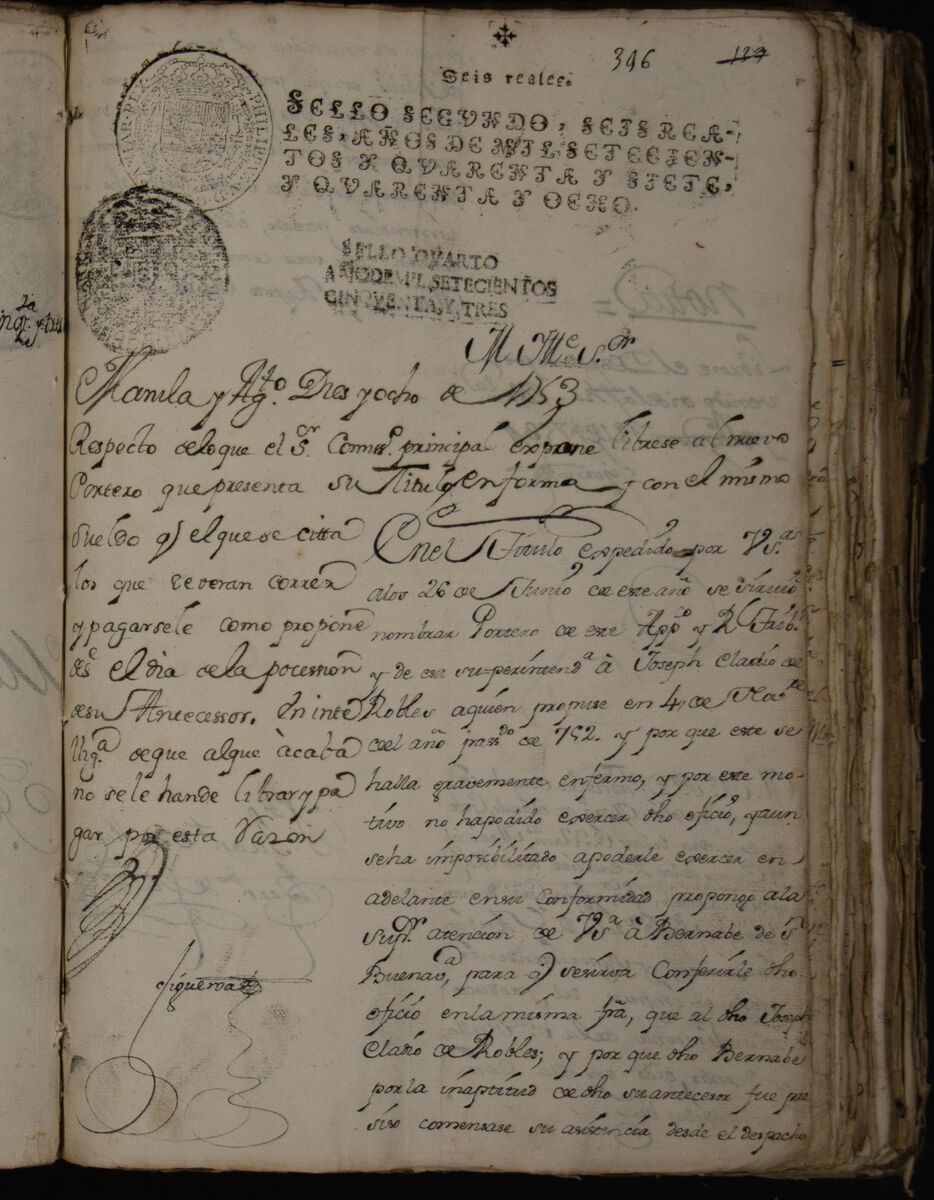 346 129
Seis reales.
SELLO SEGVNDO, SEIS REA-
LES, AÑOS DE MIL SETECIEN-
TOS Y QVARENTA Y SIETE,
Y QVARENTA Y OCHO.
SELLO QUARTO
AÑO DE MIL SETECIENTOS
CINQVENTA Y TRES
M. Ille. S.or
Manila y Ag.to Dies y ocho de 1753
Respecto deloque el S.or Comis.o principal expone librese al nuevo
Portero que presenta su Titulo en forma y con el mismo
sueldo q) el que se citta
los que se veran correr
y pagarsele como propone
des.e el dia de la pocession
de su Antecessor. En inte
lig.a de que al que àcaba
no se le han de librar y pa
gar por esta razon
Figueroa
En el Titulo expedido por VS.as
a los 26 de Junio de este año se sirvió
nombrar Portero de este App.co y R.l Trib.l
y de esa superintend.a à Joseph Cladio de
Robles aquien propuse en 4, de
del año pas.do de 752. y por que este se
halla gravemente enfermo, y por este mo-
tivo no hapodido exercer dho oficio, y aun
seha imposibilitado apoderle exercer en
adelante en su Conformidad propongo ala
Sup.or atencion de VS.a à Bernabe de S.n
Buenav.a, para q) se sirva Conferirle dho
oficio enlamisma fra, que al dho Joseph
Cladio de Robles; y por que dho Bernabe
por la inaptitud de dho su antecesor fue pre
siso comensase su asistencia desde el despacho